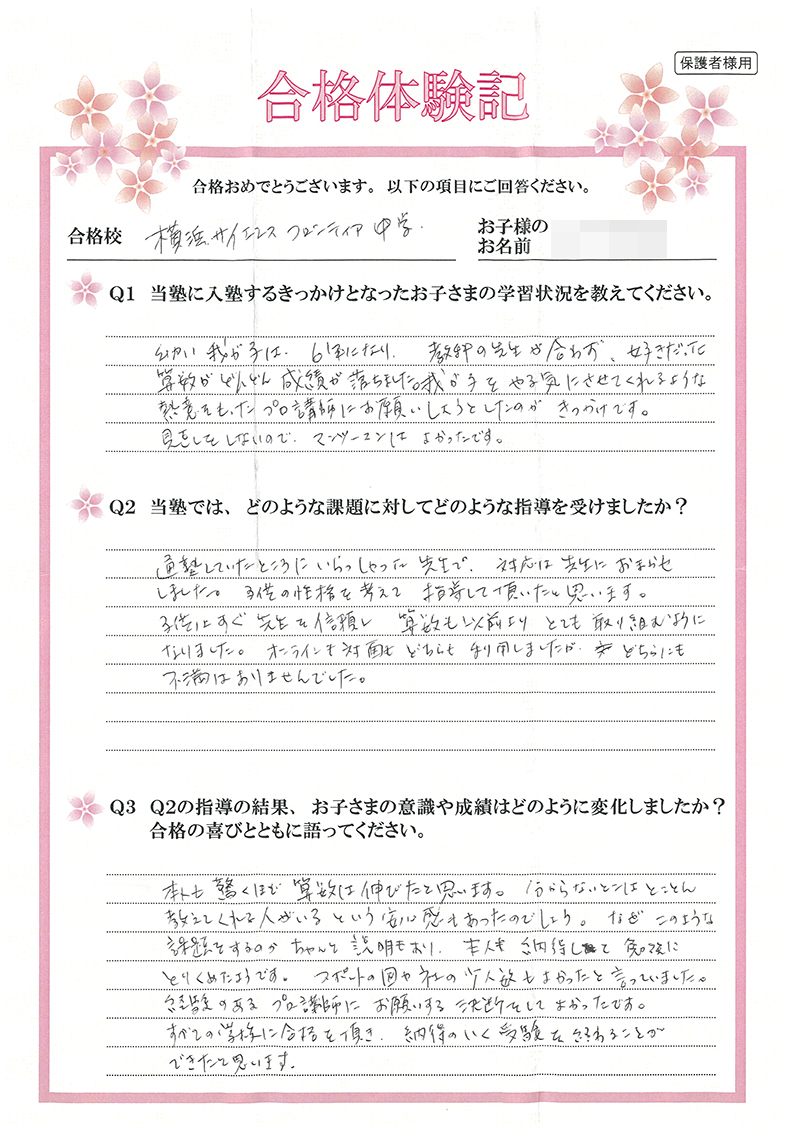 保護者様用
合格体験記
合格おめでとうございます。以下の項目にご回答ください。
合格校 横浜サイエンスフロンティア中学.
お子様の
お名前
Q1 当塾に入塾するきっかけとなったお子さまの学習状況を教えてください。
幼い我が子は、6年になり、教科の先生が合わず、好きだった
算数がどんどん成績が落ちました。我が子をやる気にさせてくれるような
熱意をもったプロ講師にお願いしようとしたのがきっかけです。
見直しをしないので、マンツーマンはよかったです。
Q2 当塾では、どのような課題に対してどのような指導を受けましたか?
通塾していたところにいらっしゃった先生で、対応は先生におまかせ
しました。子供の性格を考えて指導して頂いたと思います。
子供はすぐ先生を信頼し算数も以前よりとても取り組むように
なりました。オンラインも対面もどちらも利用しましたが、どちらにも
不満はありませんでした。
Q3 Q2の指導の結果、お子さまの意識や成績はどのように変化しましたか?
合格の喜びとともに語ってください。
本人も驚くほど算数は伸びたと思います。分からないとこはとことん
教えてくれる人がいるという安心感もあったのでしょう。なぜこのような
課題をするのかちゃんと説明もあり、本人も納得して
とりくめたようです。の少人数もよかったと言っていました。
経験のあるプロ講師にお願いする決断をしてよかったです。
すべての学校に合格を頂き、納得のいく受験を終わることが
できたと思います。